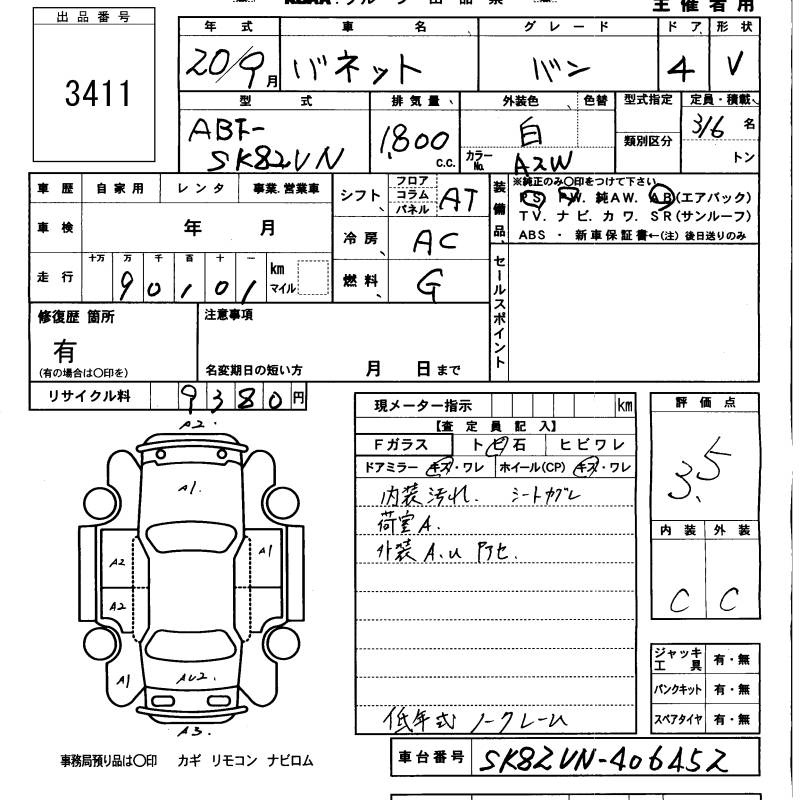 主催者用
出品番号
3411
年式 車名 グレード ドア 形状
20/9月 バネット バン 4 V
型式 排気量 外装色 色替 型式指定 定員・積載
ABF-
SK82VN
1,800 c.c.
白
カラーNo. A2W
類別区分
3/6 名
トン
車歴 自家用 レンタ 事業.営業車
車検 年 月
走行 十万 万 千 百 十 一
90101 km マイル
シフト フロア コラム パネル AT
冷房 AC
燃料 G
装備品
※純正のみ〇印をつけて下さい
PS. PW. 純AW. AB(エアバック)
TV. ナビ. カワ. SR(サンルーフ)
ABS ・ 新車保証書←(注) 後日送りのみ
セールスポイント
修復歴 箇所
有
(有の場合は〇印を)
注意事項
名変期日の短い方 月 日まで
リサイクル料 9380円
現メーター指示 km
【査定員記入】
Fガラス トビ石 ヒビワレ
ドアミラー キズ・ワレ ホイール(CP) キズ・ワレ
内装汚れ. シートカブレ
荷室A.
外装A.u
低年式 ノークレーム
評価点
3.5
内装 外装
C C
ジャッキ工具 有・無
パンクキット 有・無
スペアタイヤ 有・無
A2.
A1.
A2
A1
A2
A1
AU2.
A3.
事務局預り品は〇印 カギ リモコン ナビロム
車台番号 SK82VN-406452